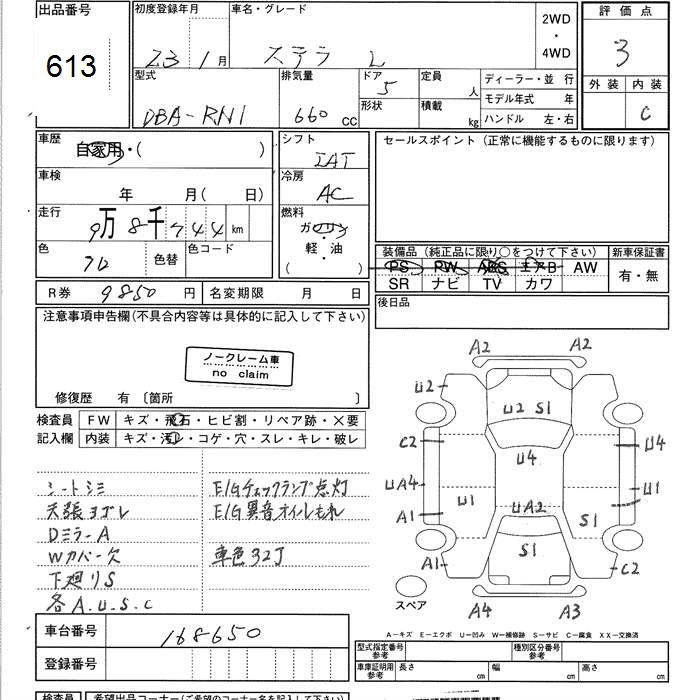 出品番号
613
初度登録年月
23 1月
車名・グレード
ステラ L
2WD
・
4WD
評価点
3
外装 内装
C
型式
DBA-RN1
排気量
660 cc
ドア
5
形状
定員
人
積載
kg
ディーラー・並 行
モデル年式 年
ハンドル 左・右
車歴
自家用・( )
シフト
IAT
セールスポイント (正常に機能するものに限ります)
車検
年 月( 日)
冷房
AC
走行
9万8千744km
燃料
ガソリン
・
軽・油
( )
色
シロ
色替
色コード
装備品 (純正品に限り○をつけて下さい)
新車保証書
PS PW ABS エアB AW
SR ナビ TV カワ
有・無
R券 9850 円
名変期限 月 日
後日品
注意事項申告欄(不具合内容等は具体的に記入して下さい)
ノークレーム車
no claim
修復歴 有 〔箇所 〕
検査員
記入欄
FW キズ・飛石・ヒビ割・リペア跡・×要
内装 キズ・汚レ・コゲ・穴・スレ・キレ・破レ
シートシミ
天張ヨゴレ
DミラーA
Wカバー欠
下廻りS
各A.U.S.C
E/Gチェックランプ点灯
E/G異音オイルもれ
車色32J
A2 A2
U2
U2 S1
C2
U4
U4
UA4
U1
UA2
U1
A1
S1
S1
A1
C2
スペア
A4 A3
A―キズ E―エクボ U―凹み W―補修跡 S―サビ C―腐食 XX―交換済
車台番号
168650
登録番号
型式指定番号
参考
種別区分番号
参考
車庫証明用
参考
長さ cm
幅 cm
高さ cm
検査員
希望出品コーナー(ご希望のコーナー名を記入下さい)